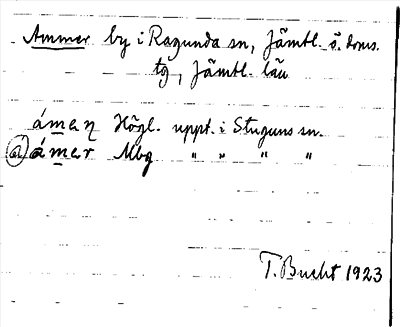 Ammer by i Ragunda sn, Jämtl. ö. doms.
tg, Jämtl. län
ámeɳ Högl. uppt. i Stuguns sn.
(a) ámer Mbg " " " "
T. Bucht 1923